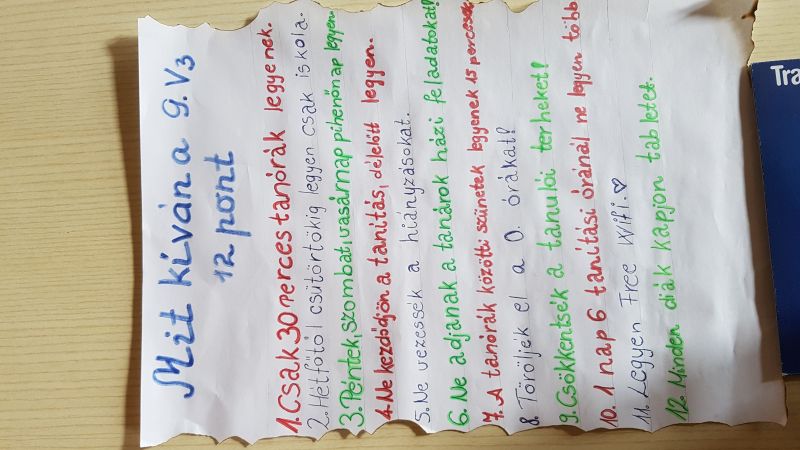 Mit kíván a 9. V3
12 pont
1. Csak 30 perces tanórák legyenek.
2. Hétfőtől csütörtökig legyen csak iskola.
3. Péntek, szombat, vasárnap pihenőnap legyen.
4. Ne kezdődjön a tanítás, délelőtt legyen.
5. Ne vezessék a hiányzásokat.
6. Ne adjanak a tanárok házi feladatokat!
7. A tanórák közötti szünetek legyenek 15 percesek
8. Töröljék el a 0. órákat!
9. Csökkentsék a tanulói terheket!
10. 1 nap 6 tanítási óránál ne legyen több
11. Legyen Free Wifi. ♡
12. Minden diák kapjon tabletet.
Tra